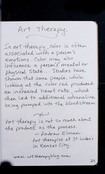 Art Therapy.
In art therapy, color is often
associated with a person's
emotions. Color may also
influence a person's mental or
physical state. Studies have
shown that some people, while
looking at the color red, produced
an increased heart rate, which
then led to additional adrenaline
being pumped into the bloodstream.
Art therapy is not so much about
the product as the process.
Art therapist at St. Luke's
in Kansas City.